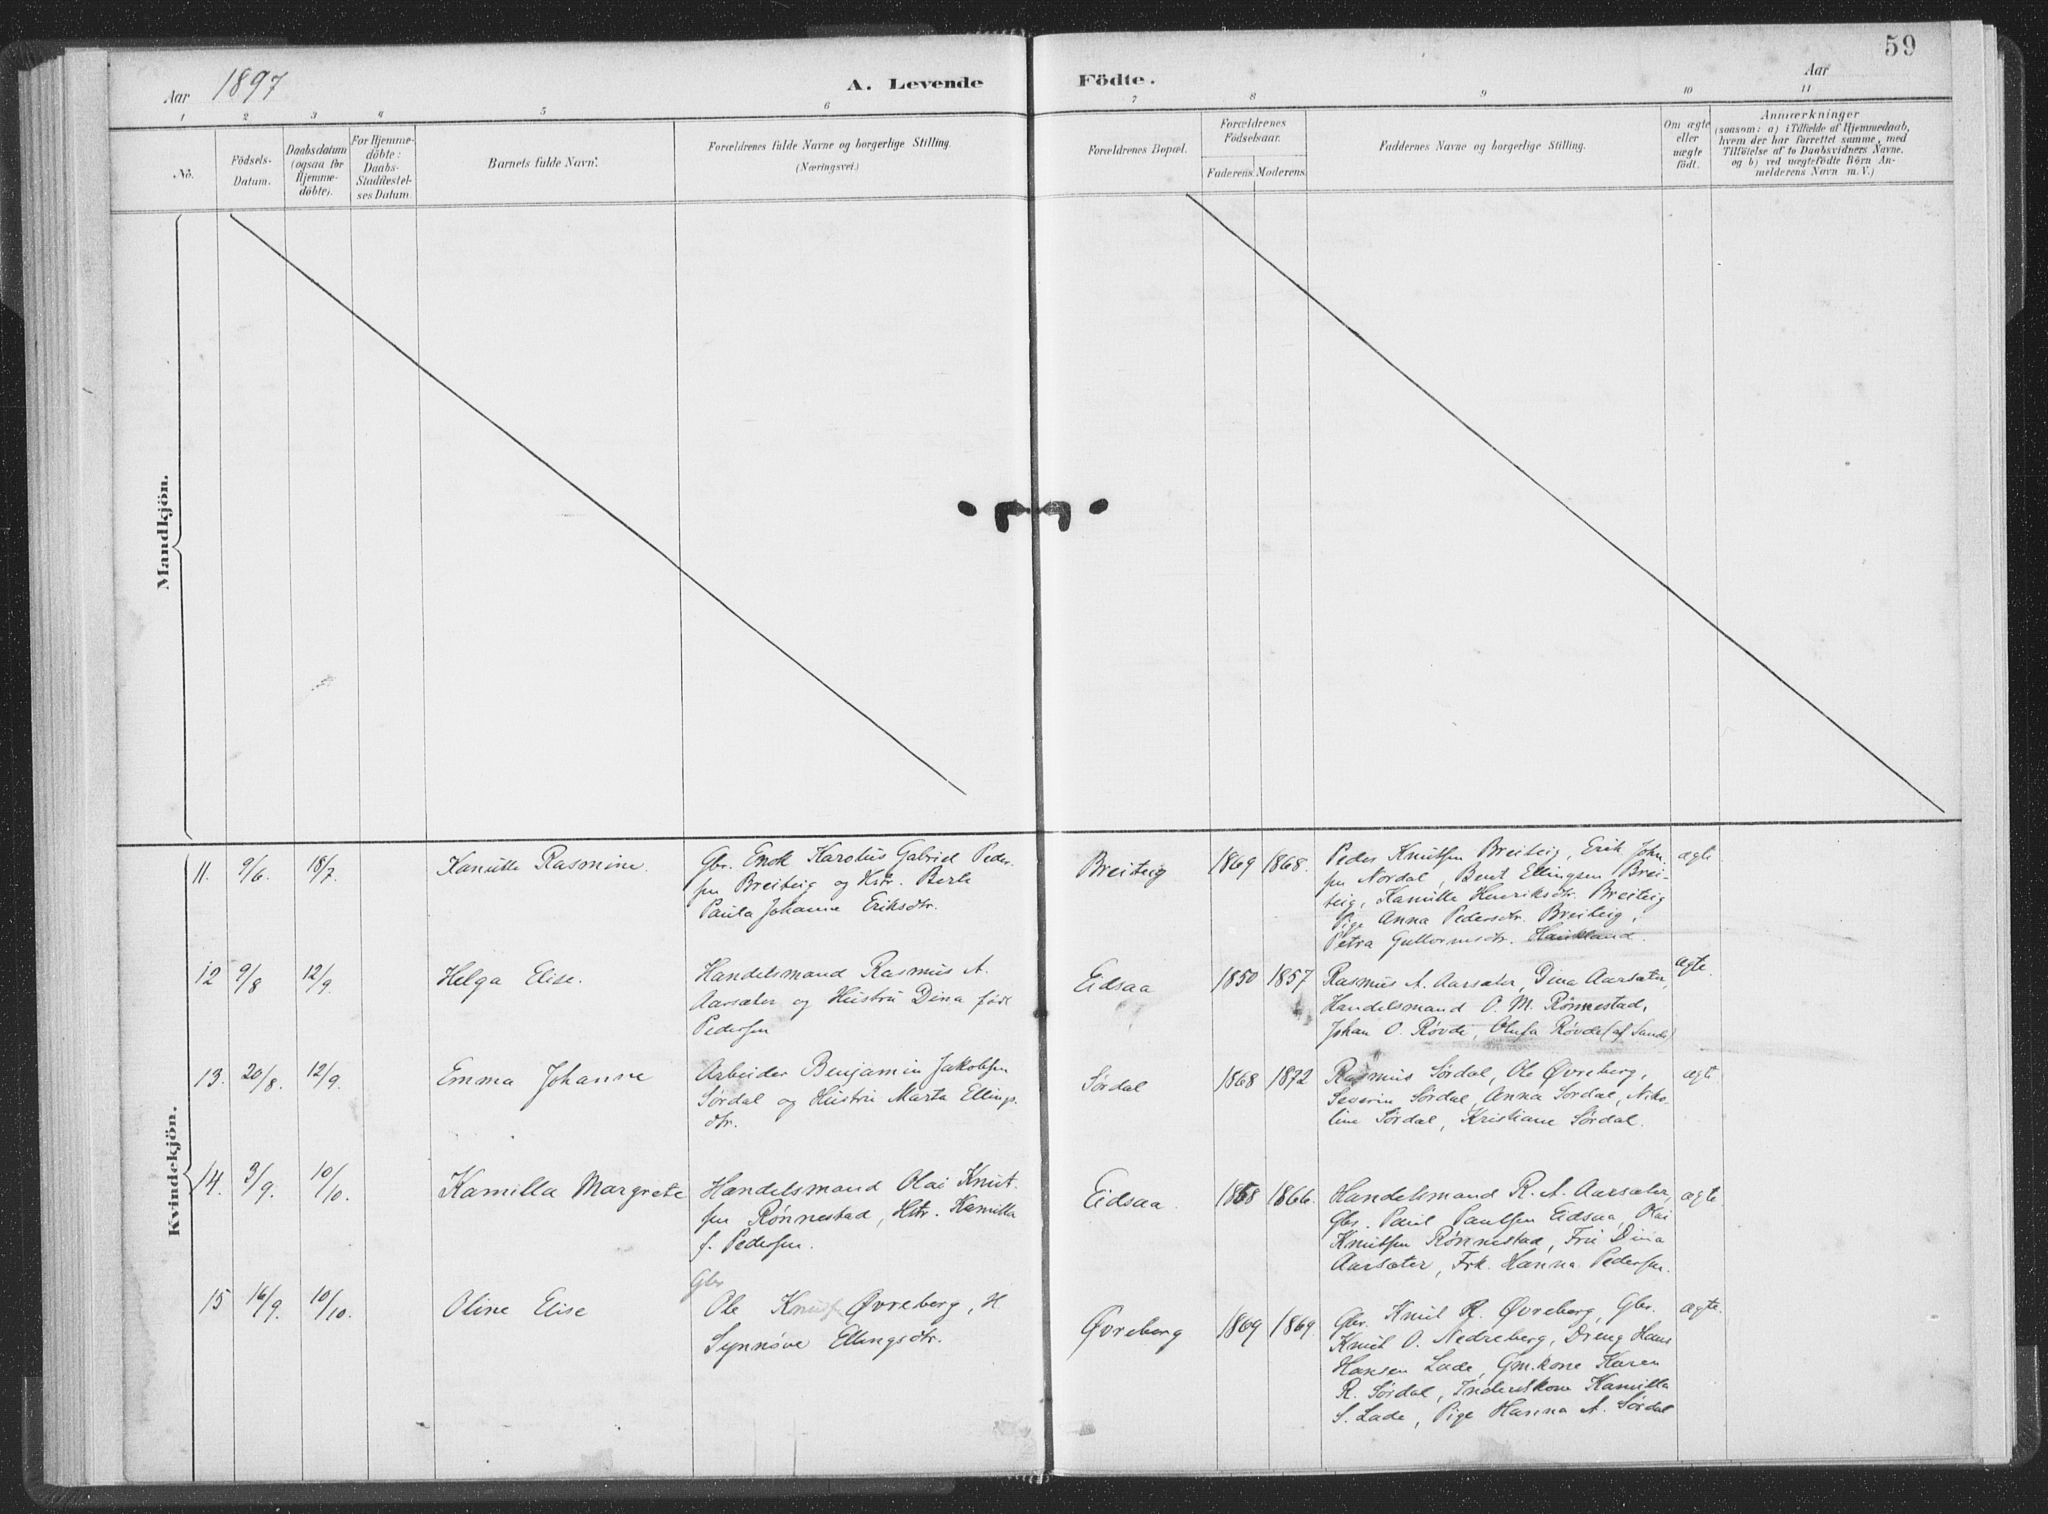 59
Aar 1897
A. Levende Födte.
Aar
1 2 3 4 5 6 7 8 9 10 11
No.
Födsels-
Datum.
Daabsdatum
(ogsaa for
Hjemme-
döbte).
For Hjemme-
döbte:
Daabs-
Stadfæstel-
ses Datum.
Barnets fulde Navn.
Forældrenes fulde Navne og borgerlige Stilling.
(Næringsvei.)
Forældrenes Bopæl.
Forældrenes
Födselsaar.
Faderens Moderens
Faddernes Navne og borgerlige Stilling.
Om ægte
eller
uægte
födt.
Anmærkninger
(saasom: a) i Tilfælde af Hjemmedaab,
hvem der har forrettet samme, med
Tilföielse af to Daabsvidners Navne.
og b) ved uægtefödte Börn An-
melderens Navn m. V.)
Mandkjön.
Kvindekjön.
11. 9/6. 18/7. Kanutte Rasmine.
Gbr. Enok Karolus Gabriel Peder-
sen Breiteig og Hstr. Berte
Paula Johanne Eriksdtr.
Breiteig 1869 1868.
Peder Knutsen Breiteig, Erik John-
sen Nordal, Bent Ellingsen Brei-
teig, Kanutte Henriksdtr. Breiteig
Pige Anna Pedersdtr. Breiteig,
Petra Guttormsdtr. Haukland.
ægte
12 9/8 12/9. Helga Elise.
Handelsmand Rasmus A.
Aarsæter og Hustru Dina født
Pedersen
Eidsaa 1850 1857
Rasmus A. Aarsæter, Dina Aarsæter,
Handelsmand O. M. Rønnestad,
Johan O. Røvde, Olufa Røvde (af Sande)
ægte.
13. 20/8. 12/9. Emma Johanne
Arbeider Benjamin Jakobsen
Sørdal og Hustru Marta Ellings-
dtr.
Sørdal 1868 1872
Rasmus Sørdal, Ole Øvreberg,
Severin Sørdal, Anna Sørdal, Niko-
line Sørdal, Kristiane Sørdal.
ægte
14. 3/9. 10/10. Kamilla Margrete
Handelsmand Olai Knut-
sen Rønnestad, Hstr. Kamilla
f. Pedersen.
Eidsaa. 1868 1866.
Handelsmand R. A. Aarsæter,
Gbr. Paul Paulsen Eidsaa, Olai
Knutsen Rønnestad, Fru Dina
Aarsæter, Frk. Hanna Pedersen.
ægte
15 16/9. 10/10. Oline Elise
Gbr
Ole Knuts Øvreberg, H.
Synnøve Ellingsdtr.
Øvreberg 1869 1869.
Gbr. Knut R. Øvreberg, Gbr.
Knut O. Nedreberg, Dreng Hans
Hansen Lade, Gm.kone Karen
R. Sørdal, Inderstkone Kamilla
S. Lade, Pige Hanna A. Sørdal
ægte.